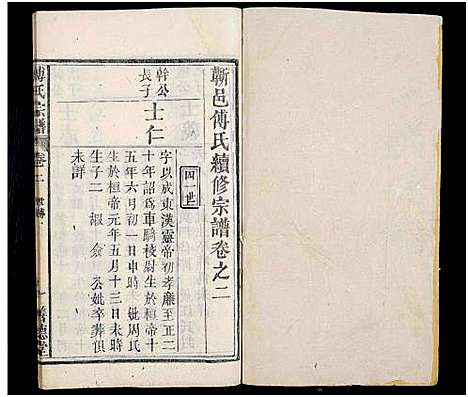 蘄邑傅氏續修宗譜卷之二
四一世
幹公
長子
士仁
字以成東漢靈帝初孝廉至正二
十年詔爲車騎校尉生於桓帝十
五年六月初一日申時 妣周氏
生於桓帝元年五月十三日未時
生子二 嘏 僉 公妣卒葬俱
未詳
傅氏宗譜
卷二
善德堂